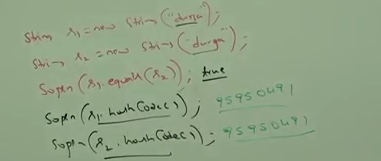 String s1=new String("durga");
String s2=new String("durga");
Sopln(s1.equals(s2)); true
Sopln(s1.hashCode()); 95950491
Sopln(s2.hashCode()); 95950491